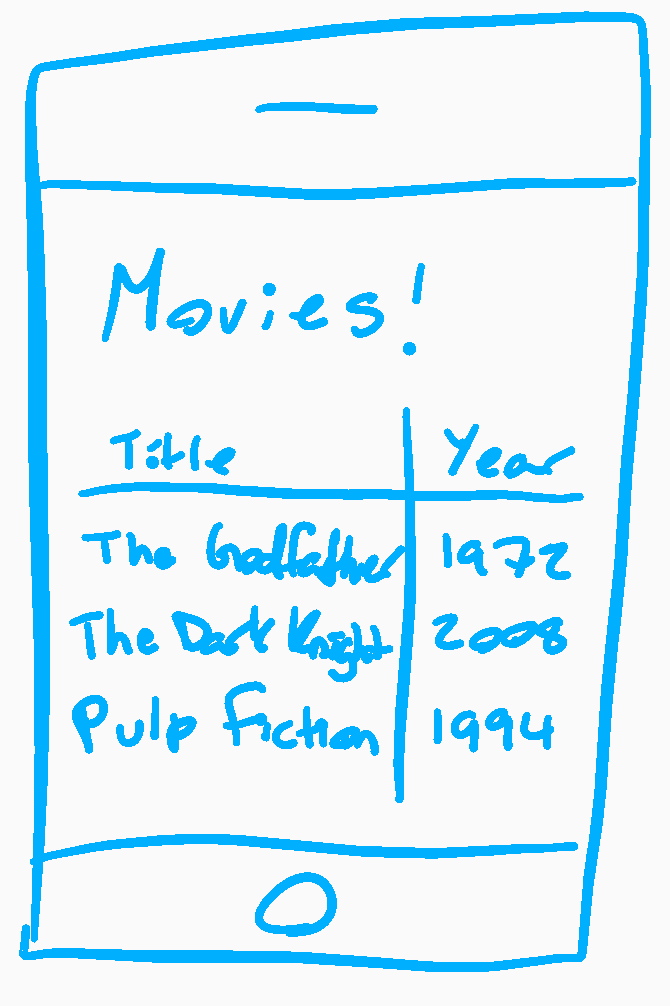 Movies!
Title Year
The Godfather 1972
The Dark Knight 2008
Pulp Fiction 1994